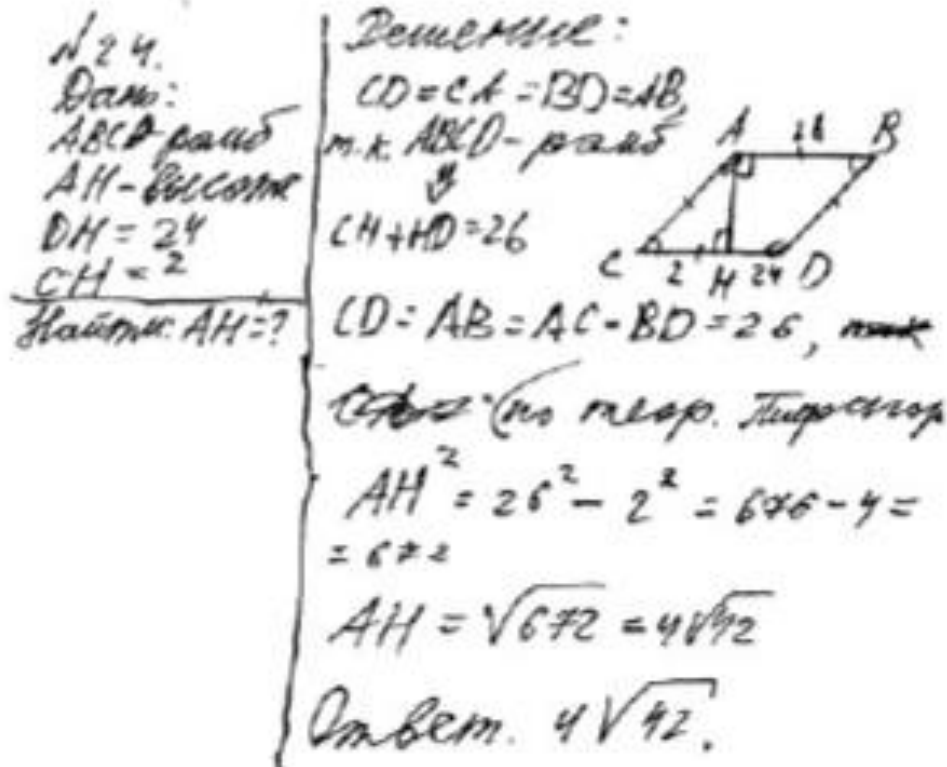 N 24.
Дано:
ABCD-ромб
AH-высота
DH = 24
CH = 2
Найти: AH = ?
Решение:
CD = CA = BD = AB,
т.к. ABCD - ромб
CH + HD = 26
A 26 B
C 2 H 24 D
CD = AB = AC = BD = 26,
(по теор. Пифагор
AH² = 26² - 2² = 676 - 4 =
= 672
AH = √672 = 4√42
Ответ. 4√42.